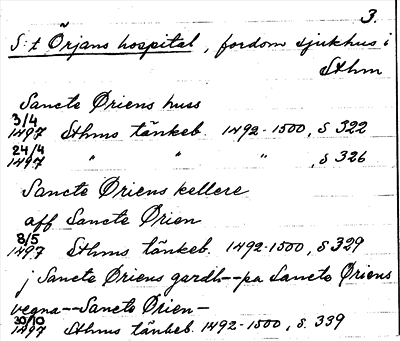 3.
S:t Örjans hospital, fordom sjukhus i
Sthm
Sancte Øriens huss
3/4
1497 Sthms tänkeb. 1492-1500, s 322
24/4
1497 " " " , s 326
Sancte Øriens kellere
aff Sancte Ørien
8/5
1497 Sthms tänkeb. 1492-1500, s 329
j Sancte Øriens gardh--pa Sancte Øriens
vegna--Sancte Ørien-
30/10
1497 Sthms tänkeb. 1492-1500, s. 339